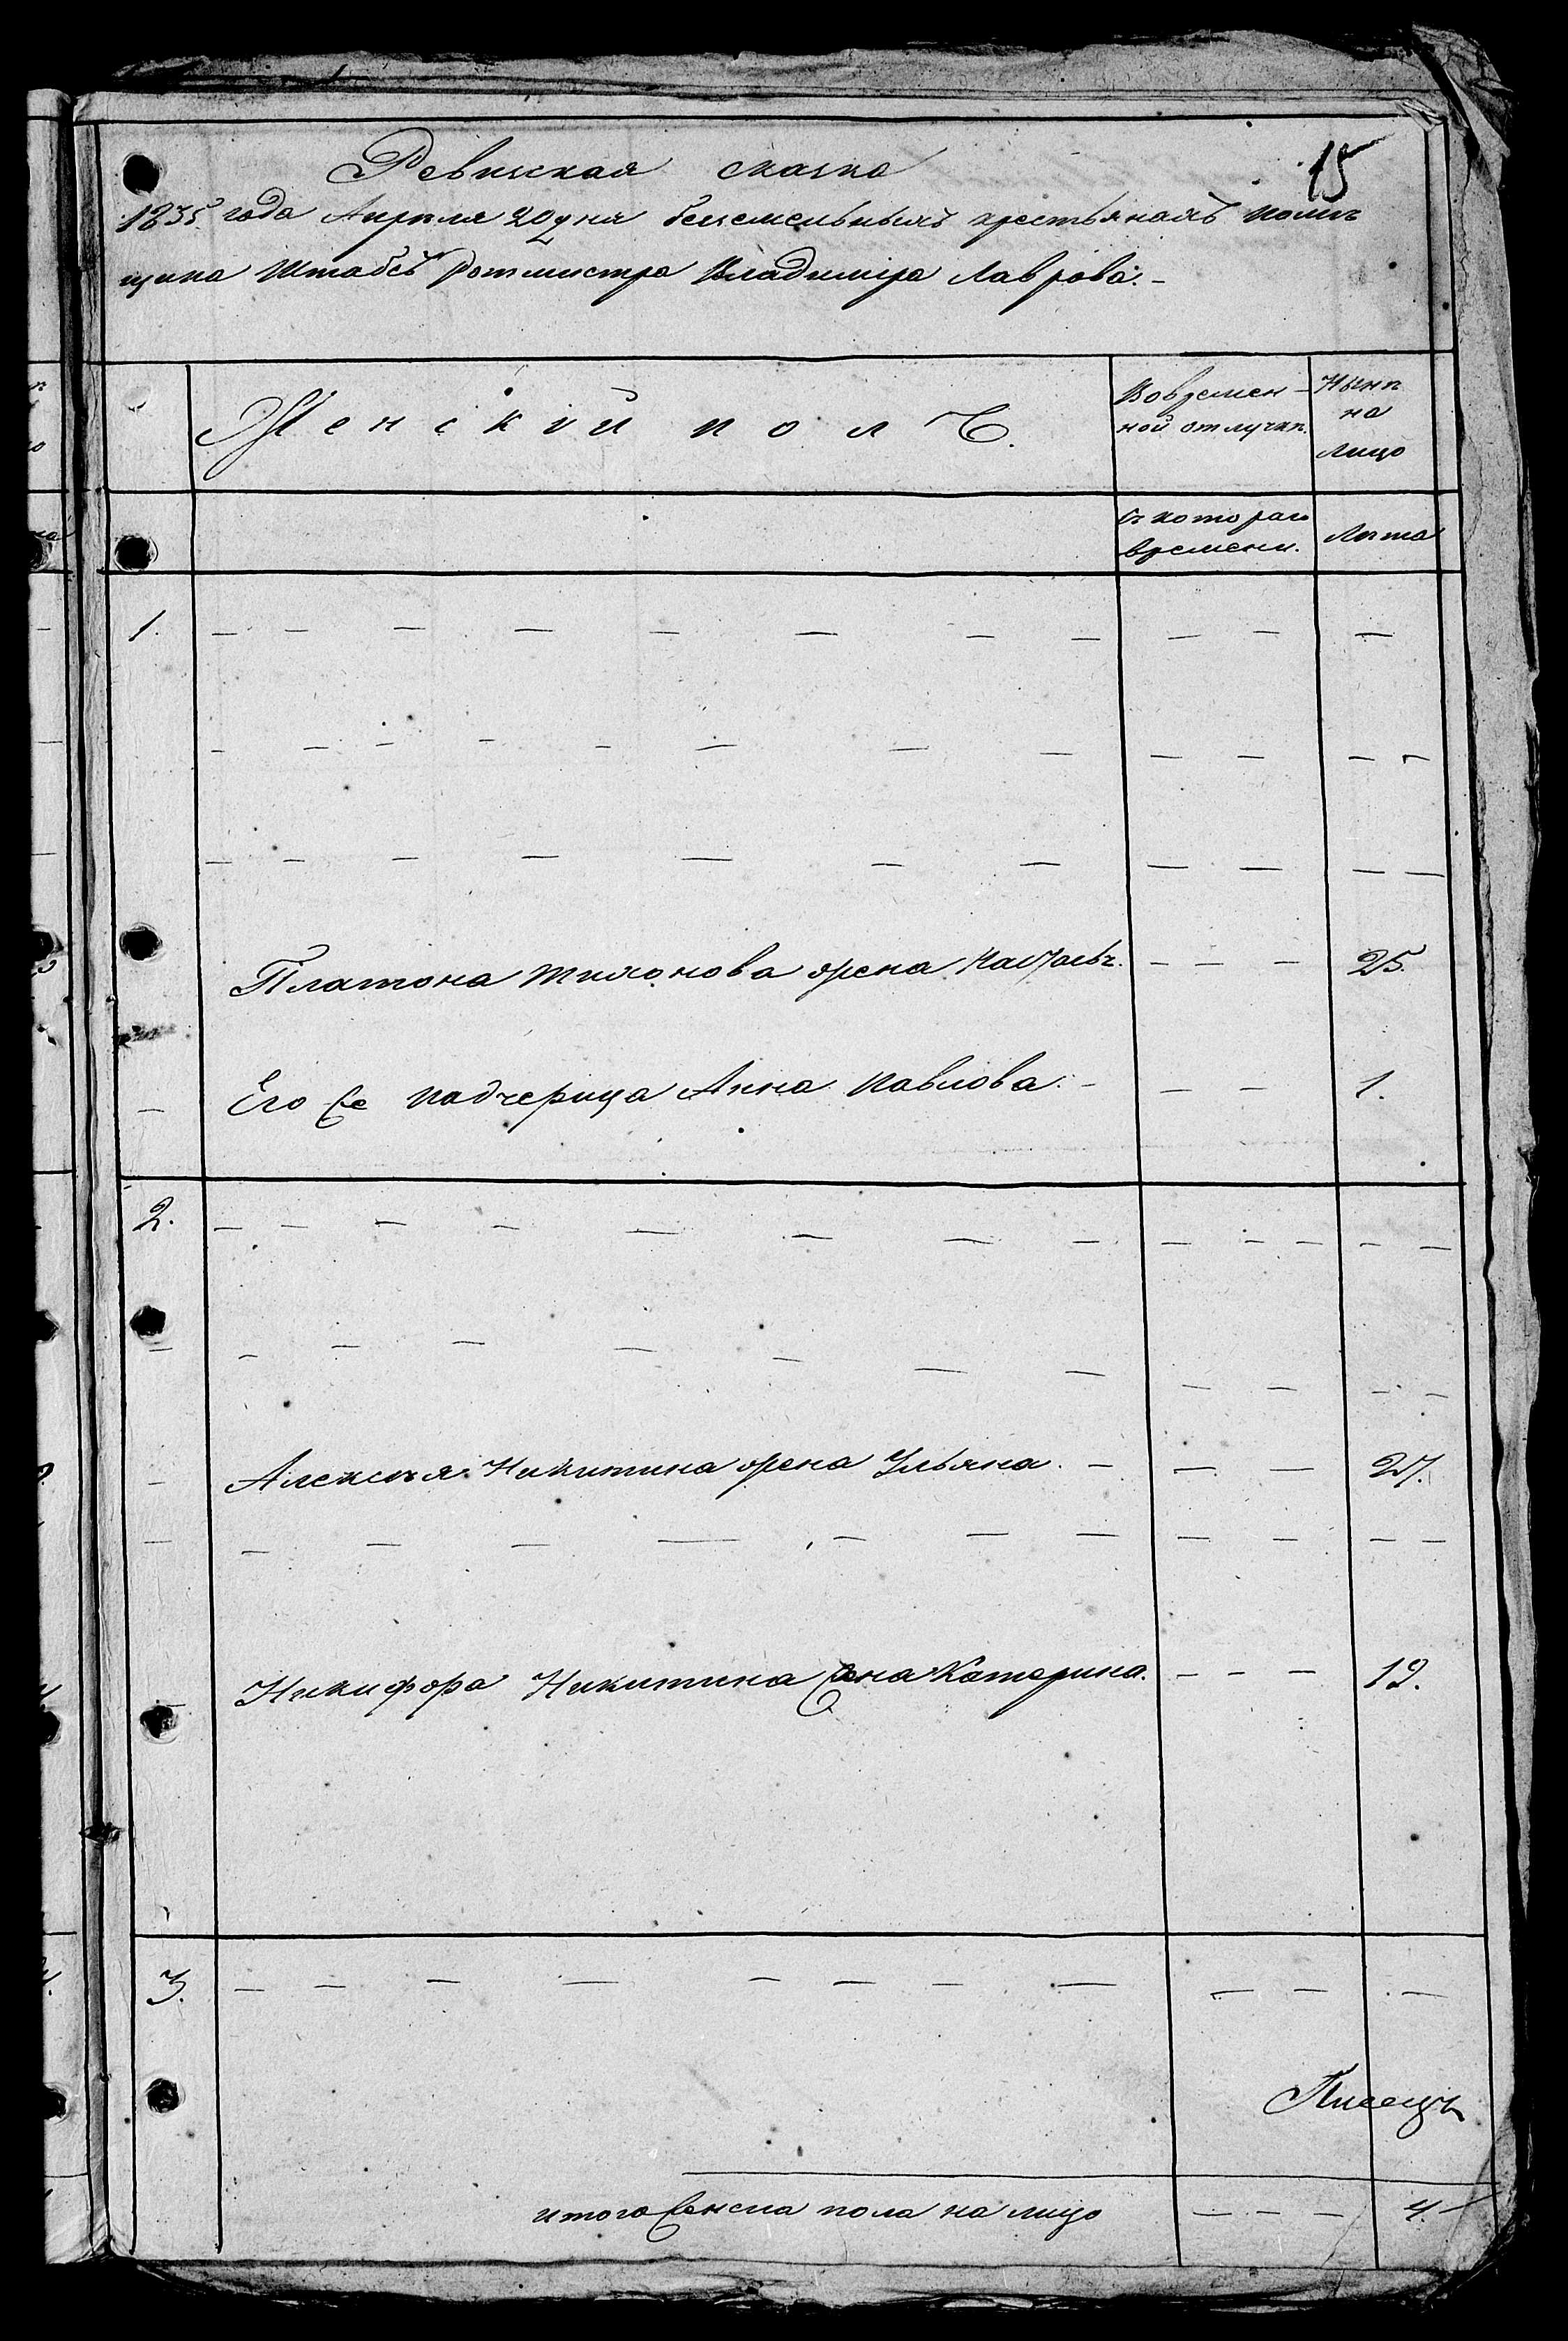 15
Ревизская сказка
1835. года Апреля 20 дня безземельнымъ крестьянамъ поме
щика Штабсъ Ротмистра Владимiра Лаврова.-
Женскiй полъ.
Вовремен-
ной отлучкѣ.
Нынѣ
на
лицо
съ котораго
времени.
Лѣта
1.
Платона Тихонова жена Настасья. 25.
Его же падчерица Анна Павлова. 1.
2.
Алексѣя Никитина жена Ульяна. 27.
Никифора Никитина жена Катерина. 19.
3.
Писецъ
итого женска пола на лицо 4.